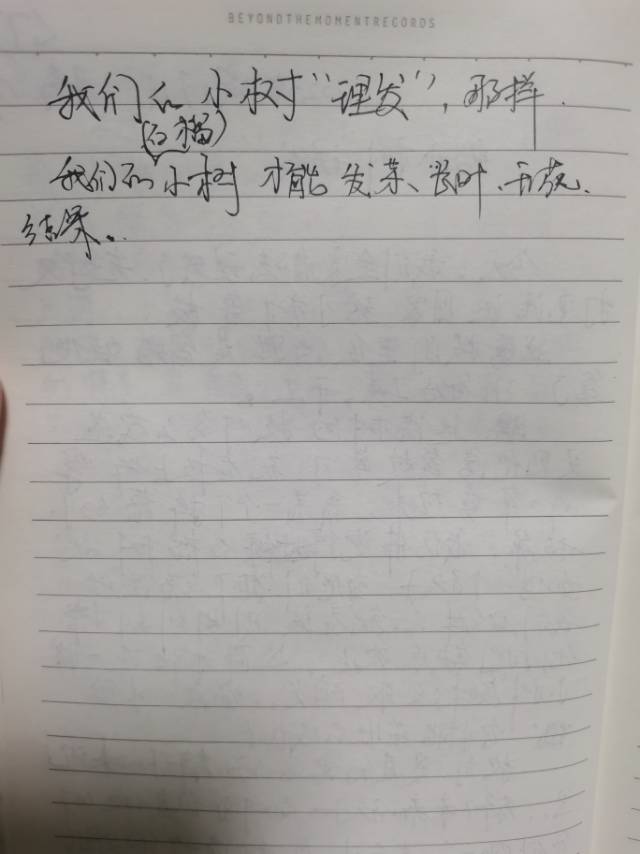 BEYONDTHEMOMENTRECORDS
我们和小树“理发”，那样
我们的小树才能发芽、长叶、开花、
结果。